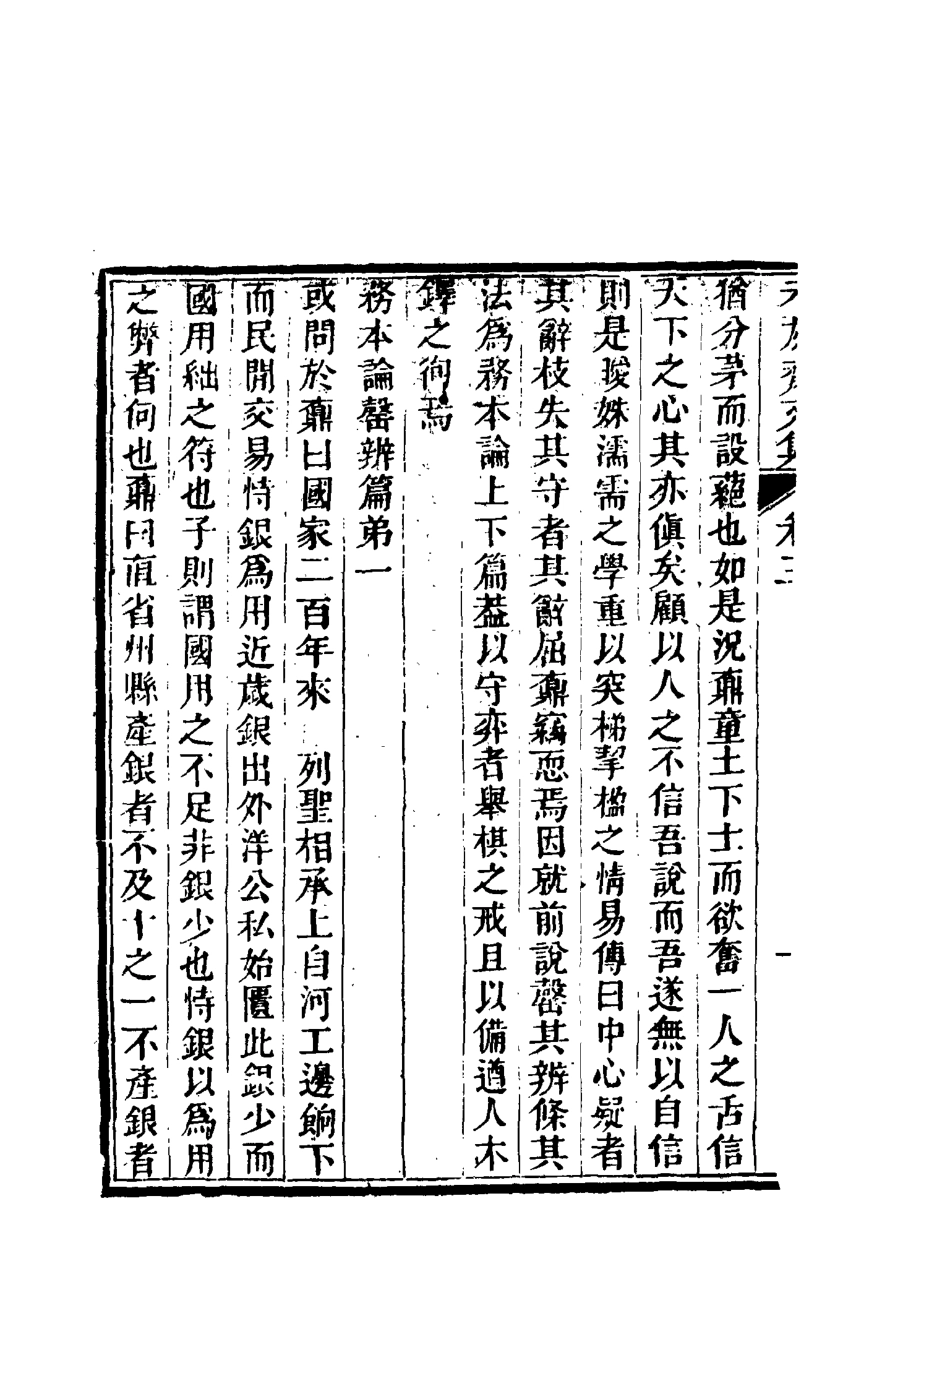 猶分茅而設蕝也如是況鼒童土下士而欲奮一人之舌信
天下之心其亦傎矣顧以人之不信吾說而吾遂無以自信
則是暖姝濡需之學重以突梯挈楹之情易傳曰中心疑者
其辭枝失其守者其辭屈鼒竊恧焉因就前說罄其辨條其
法爲務本論上下篇葢以守弈者舉棋之戒且以備遒人木
鐸之徇焉
務本論罄辨篇弟一
或問於鼒曰國家二百年來　列聖相承上自河工邊餉下
而民閒交易恃銀爲用近歲銀出外洋公私始匱此銀少而
國用絀之符也子則謂國用之不足非銀少也恃銀以爲用
之弊者何也鼒曰直省州縣產銀者不及十之一不產銀者